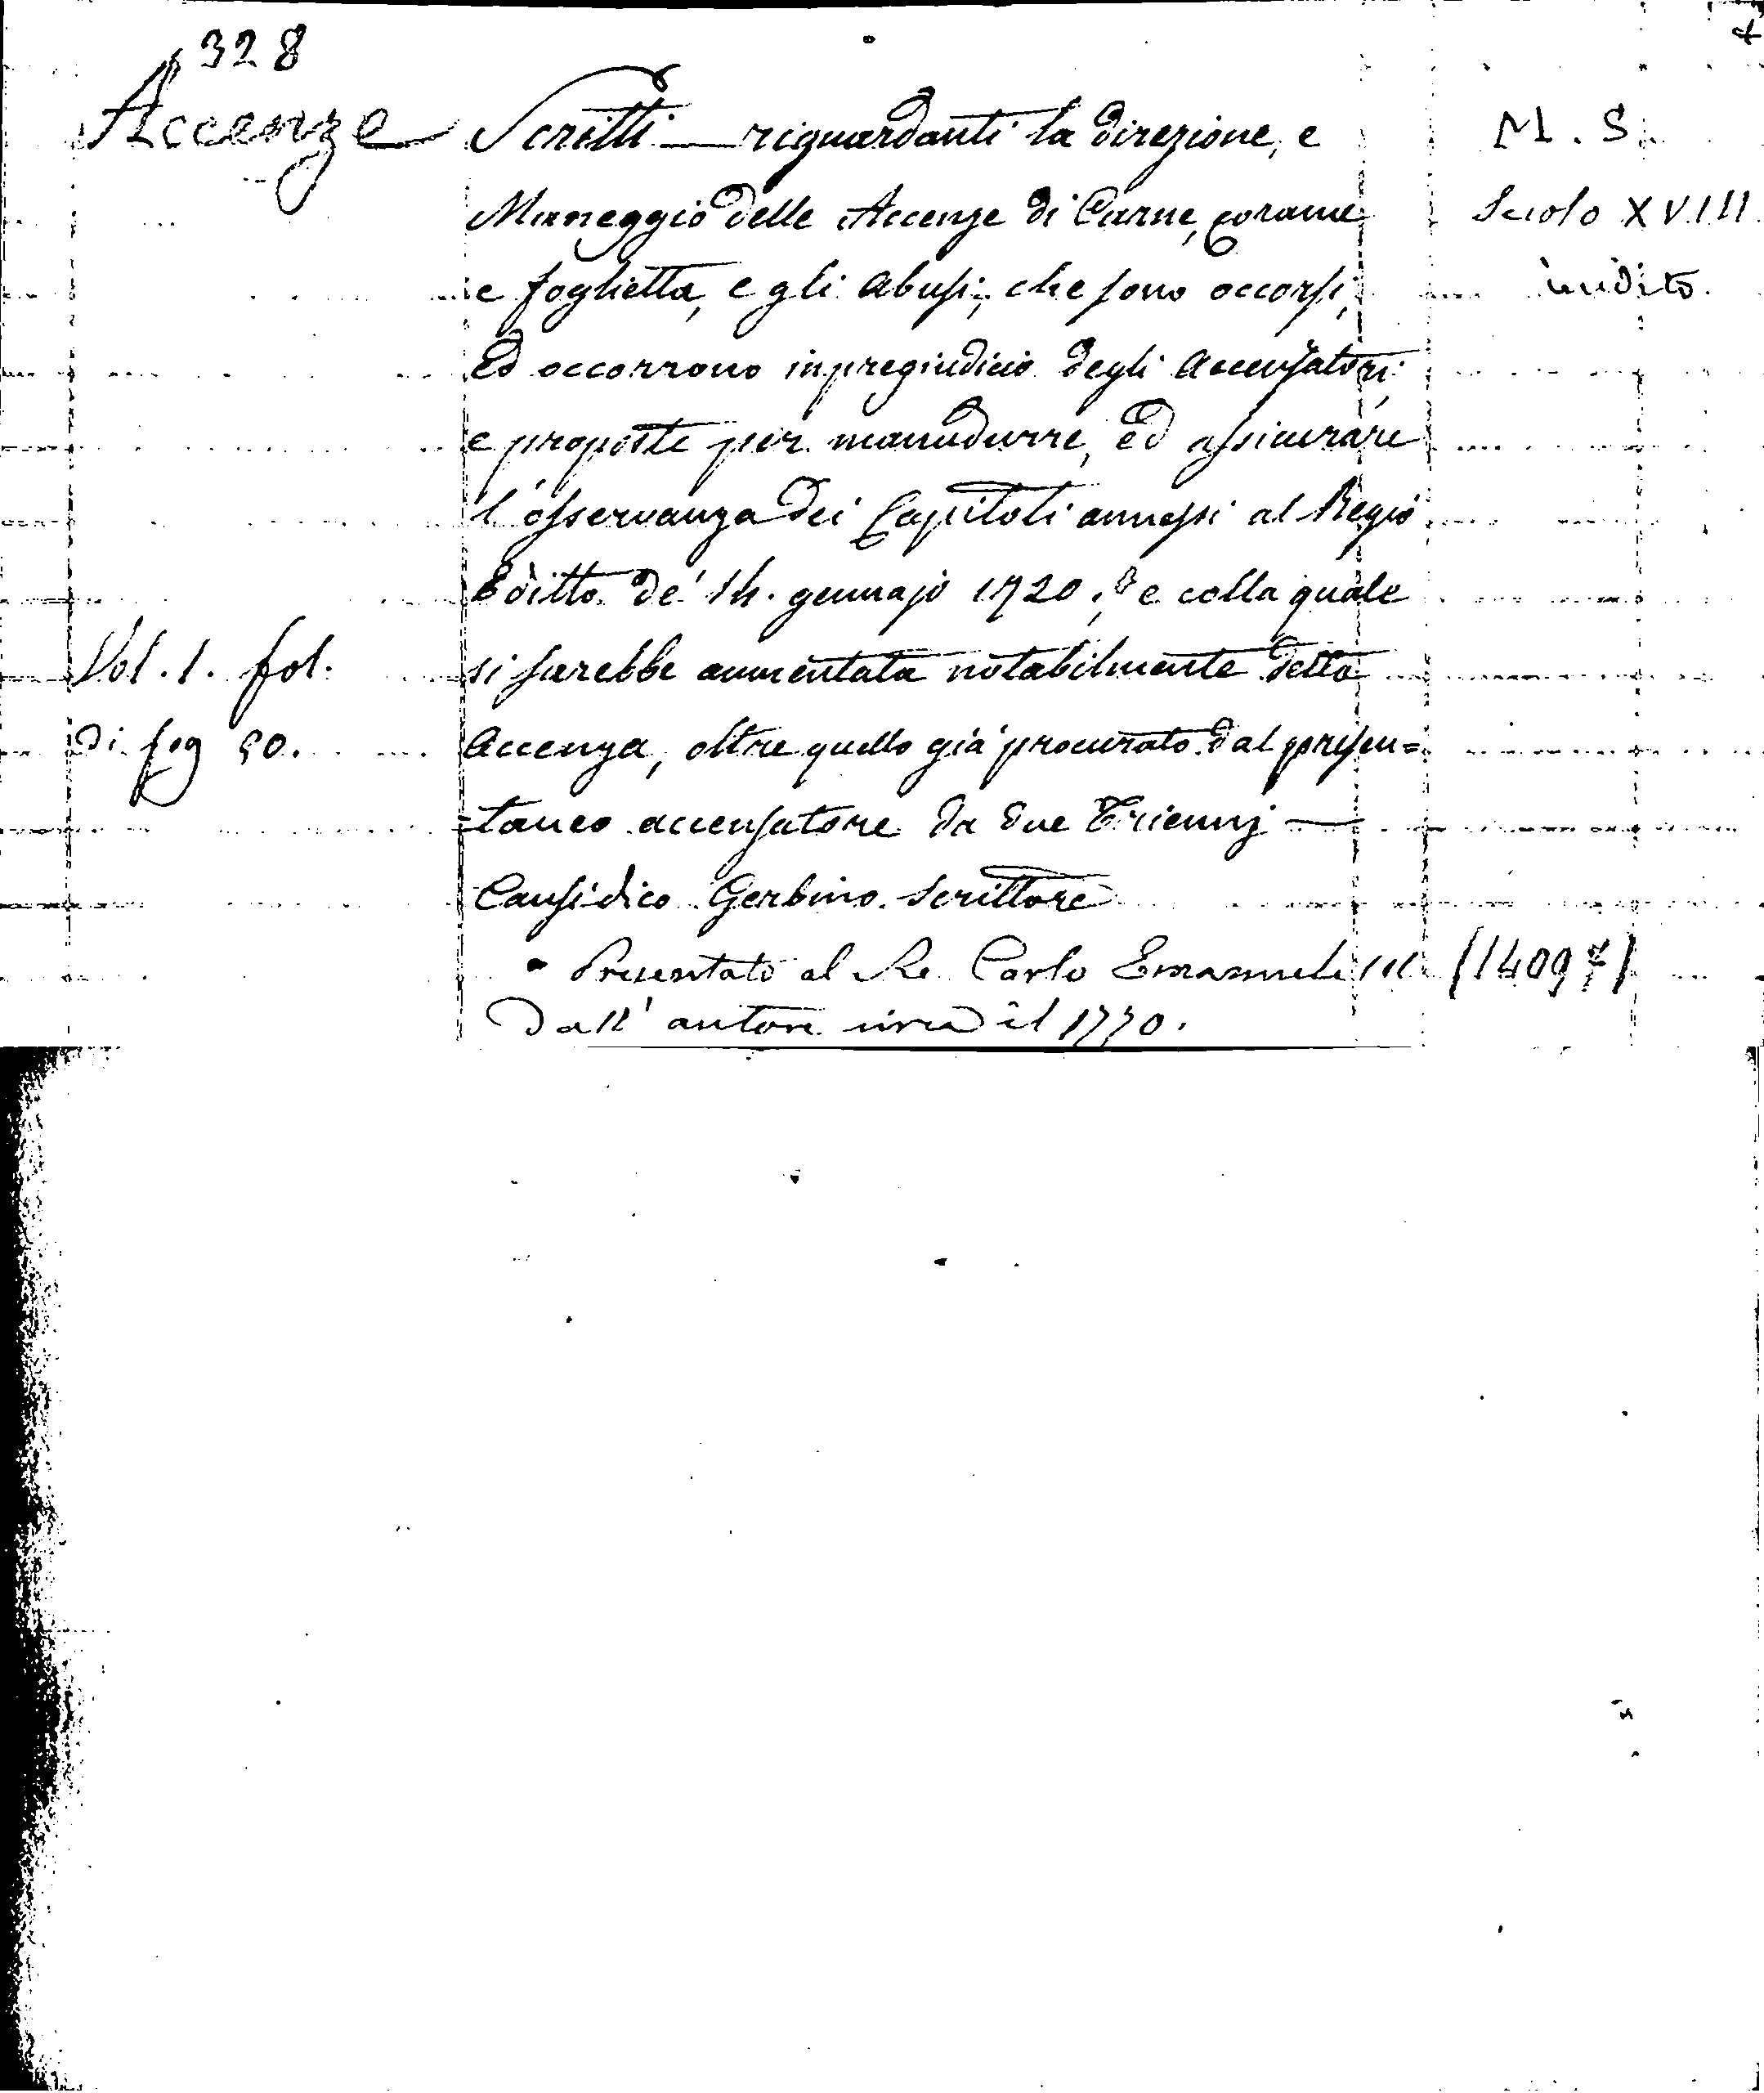 328
Accenze
Scritti — riguardanti la direzione, e
Maneggio delle Accenze di Carne, corame
e foglietta, e gli abusi, che sono occorsi,
ed occorrono in pregiudicio degli accensatori
e proposte per manudurre, ed assicurare
l'osservanza dei Capitoli annessi al Regio
Editto de' 14. gennajo 1720., e colla quale
si sarebbe aumentata notabilmente detta
accenza, oltre quello già procurato dal presen=
taneo accensatore da due Trienni —
Causidico Gerbino Scrittore
Presentato al Re Carlo Emanuele III
dall' autore circa il 1770.
Vol. 1. fol.
di fog 90.
M. S.
Secolo XVIII
inedito.
(14097)